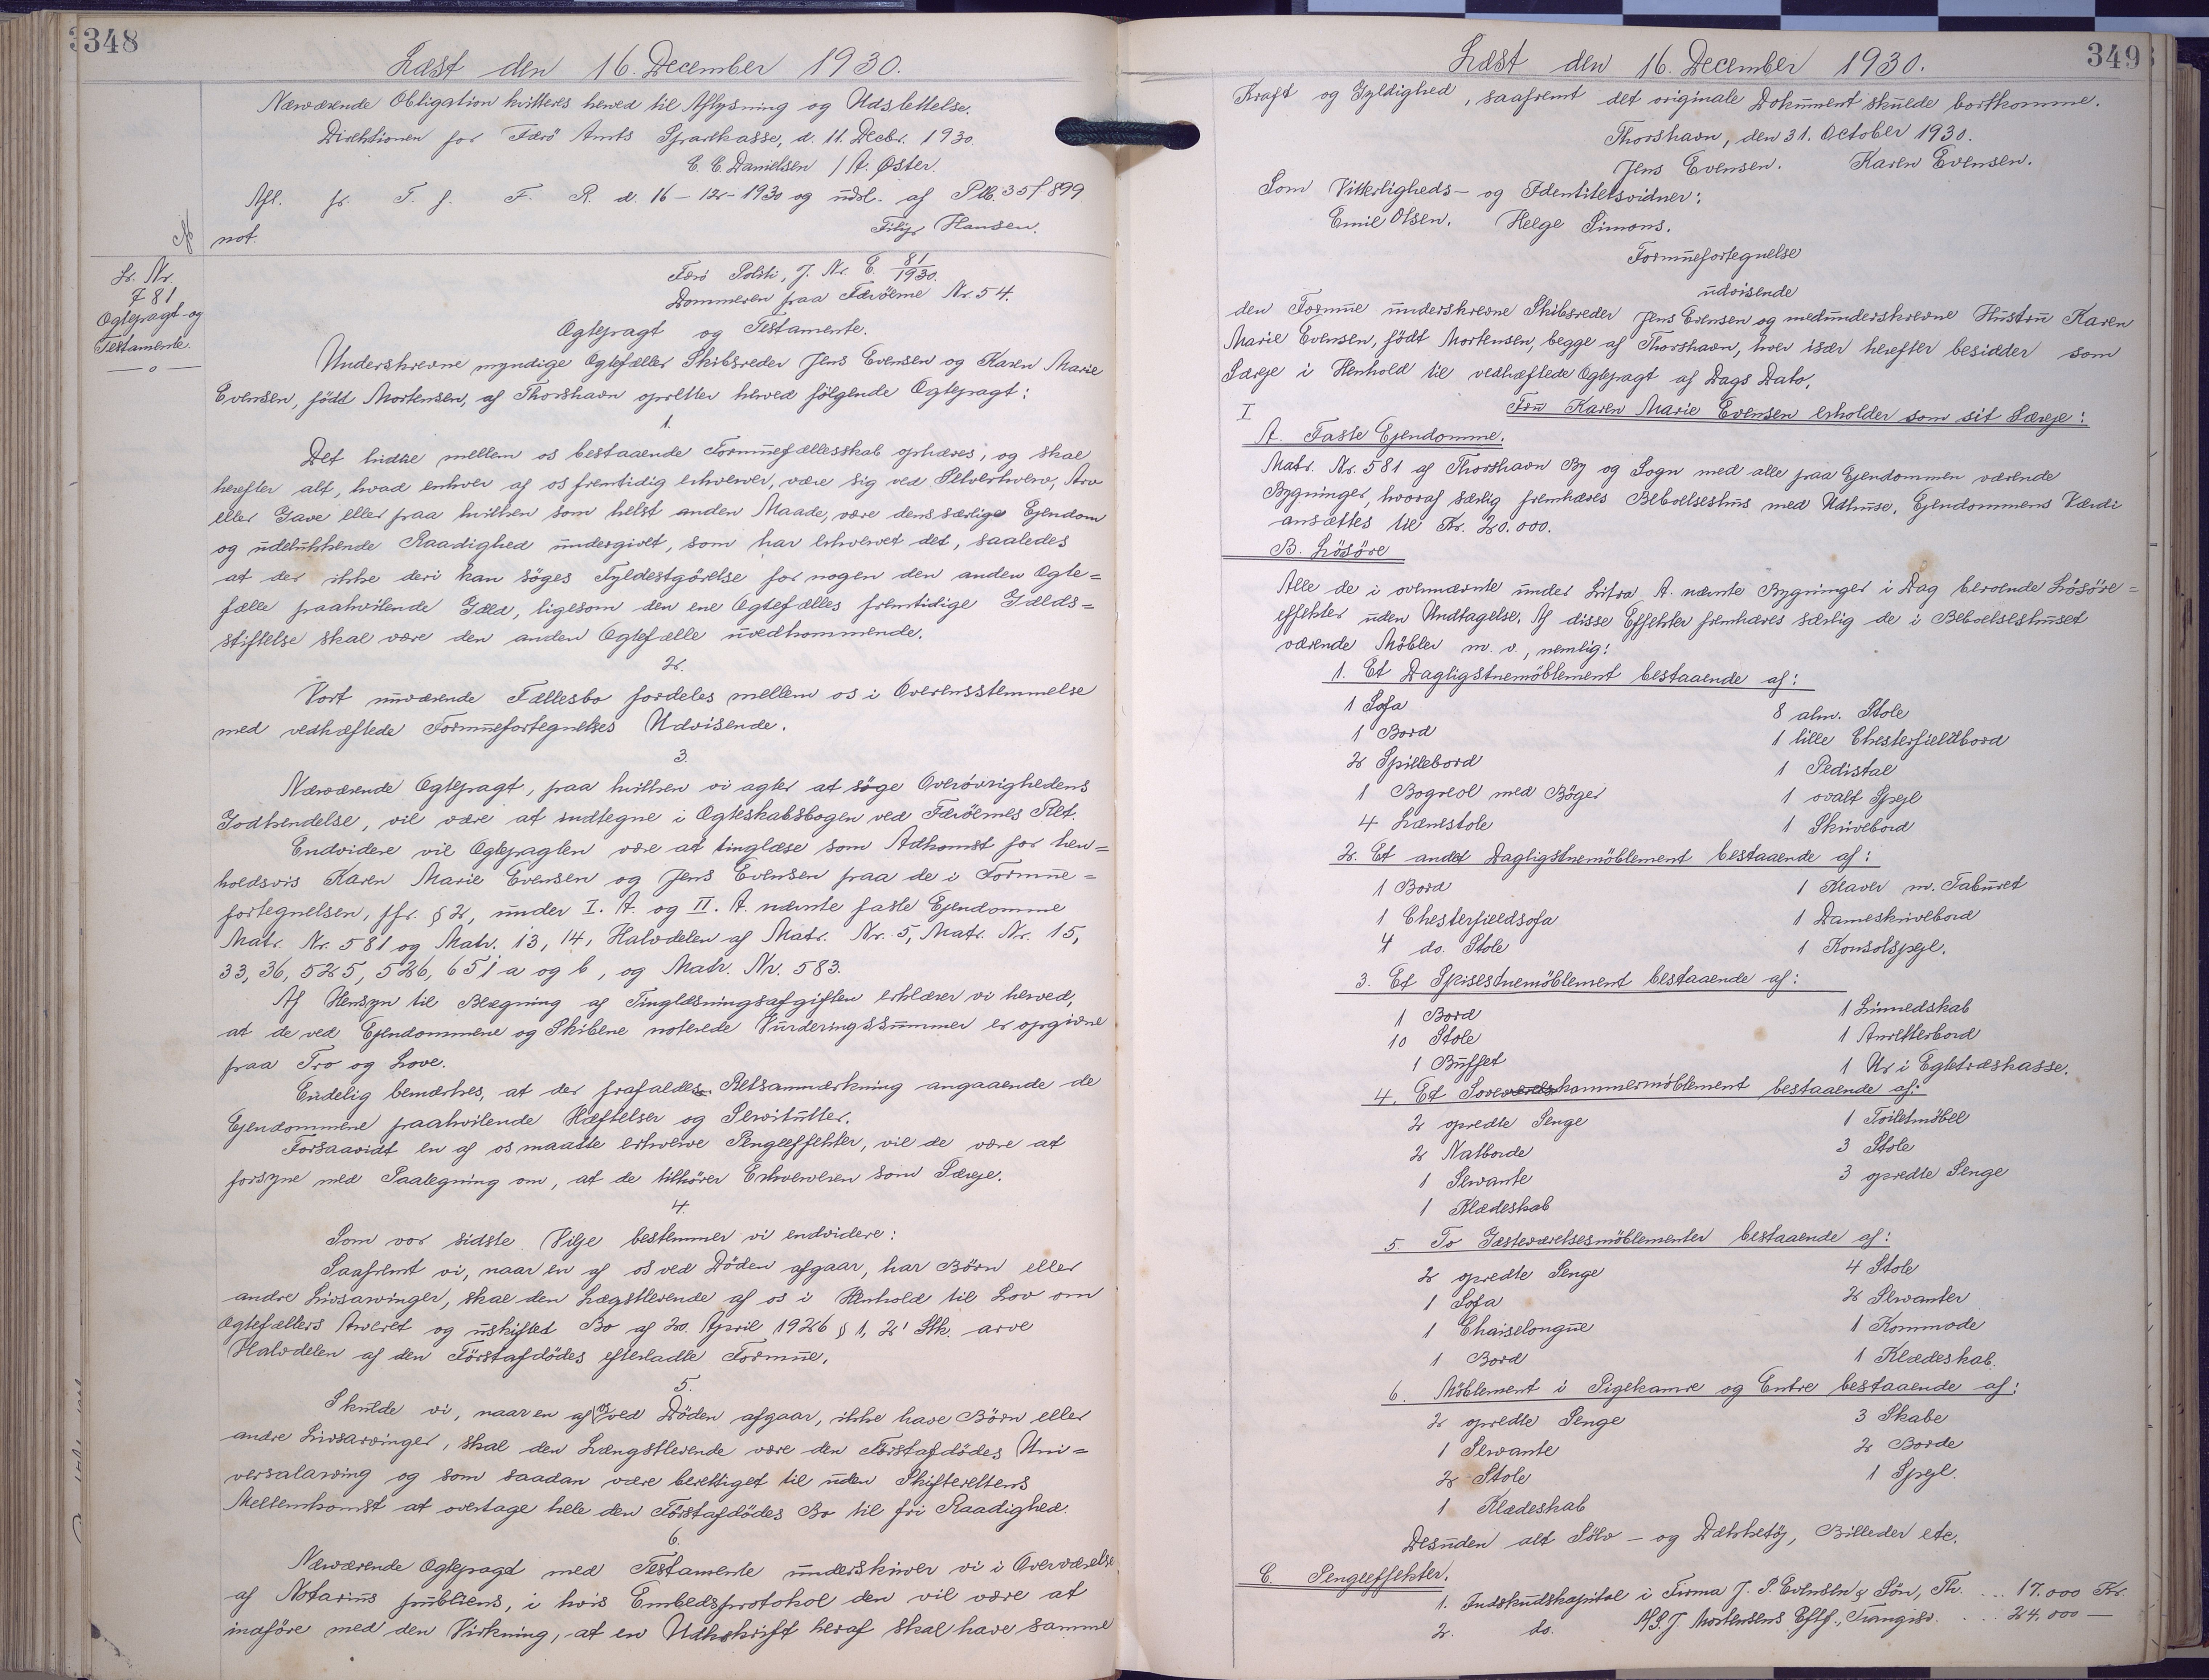 348
Læst den 16. December 1930.
Nærværende Obligation kvitteres herved til Aflysning og Udslettelse.
Direktionen for Færø Amts Sparekasse, d. 11. Decbr. 1930.
C. C. Danielsen / A. Øster.
Afl. fr. T. f. F. R. d. 16-12-1930 og udsl. af Ptb. 35f 899
not.
Filip Hansen.
Lr. Nr.
781
Ægtepagt og
Testamente.
— o —
Færø Politi, J. Nr. E. 81/1930.
Dommeren paa Færöerne Nr. 54.
Ægtepagt og Testamente.
Underskrevne myndige Ægtefæller Skibsreder Jens Evensen og Karen Marie
Evensen, født Mortensen, af Thorshavn opretter herved følgende Ægtepagt:
1.
Det hidtil mellem os bestaaende Formuefællesskab ophæves, og skal
herefter alt, hvad enhver af os fremtidig erhverver, være sig ved Selverhverv, Arv
eller Gave eller paa hvilken som helst anden Maade, være dens særlige Ejendom
og udelukkende Raadighed undergivet, som har erhvervet det, saaledes
at der ikke deri kan søges Fyldestgörelse for nogen den anden Ægte=
fælle paahvilende Gæld, ligesom den ene Ægtefælles fremtidige Gælds=
stiftelse skal være den anden Ægtefælle uvedkommende.
2.
Vort nuværende Fællesbo fordeles mellem os i Overensstemmelse
med vedhæftede Formuefortegnelses Udvisende.
3.
Nærværende Ægtepagt, paa hvilken vi agter at söge Overövrighedens
Godkendelse, vil være at indtegne i Ægteskabsbogen ved Færöernes Ret.
Endvidere vil Ægtepagten være at tinglæse som Adkomst for hen=
holdsvis Karen Marie Evensen og Jens Evensen paa de i Formue=
fortegnelsen, jfr. § 2, under I. A. og II. A. nævnte faste Ejendomme
Matr. Nr. 581 og Matr. 13, 14, Halvdelen af Matr. Nr. 5, Matr. Nr. 15,
33, 36, 525, 526, 651 a og b, og Matr. Nr. 583.
Af Hensyn til Beregning af Tinglæsningsafgiften erklærer vi herved,
at de ved Ejendommene og Skibene noterede Vurderingssummer er opgivne
paa Tro og Love.
Endelig bemærkes, at der frafaldes Retsanmærkning angaaende de
Ejendommene paahvilende Hæftelser og Servitutter.
Forsaavidt en af os maatte erhverve Pengeeffekter, vil de være at
forsyne med Paategning om, at de tilhører Erhververen som Særeje.
4.
Som vor sidste Vilje bestemmer vi endvidere:
Saafremt vi, naar en af os ved Döden afgaar, har Börn eller
andre Livsarvinger, skal den Længstlevende af os i Henhold til Lov om
Ægtefællers Arveret og uskiftet Bo af 20. April 1926 § 1, 2' Stk. arve
Halvdelen af den Förstafdödes efterladte Formue.
5.
Skulde vi, naar en af os ved Döden afgaar, ikke have Börn eller
andre Livsarvinger, skal den Længstlevende være den Förstafdödes Uni=
versalarving og som saadan være berettiget til uden Skifterettens
Mellemkomst at overtage hele den Förstafdödes Bo til fri Raadighed.
6.
Nærværende Ægtepagt med Testamente underskriver vi i Overværelse
af Notarius publicus, i hvis Embedsprotokol den vil være at
indföre med den Virkning, at en Udskrift heraf skal have samme
349
Læst den 16. December 1930.
Kraft og Gyldighed, saafremt det originale Dokument skulde bortkomme.
Thorshavn, den 31. October 1930.
Jens Evensen. Karen Evensen.
Som Vitterligheds- og Identitetsvidner:
Emil Olsen. Helge Simons.
Formuefortegnelse
udvisende
den Formue underskrevne Skibsreder Jens Evensen og medunderskrevne Hustru Karen
Marie Evensen, født Mortensen, begge af Thorshavn, hver især herefter besidder som
Særeje i Henhold til vedhæftede Ægtepagt af Dags Dato.
I Fru Karen Marie Evensen erholder som sit Særeje:
A. Faste Ejendomme.
Matr. Nr. 581 af Thorshavn By og Sogn med alle paa Ejendommen værende
Bygninger, hvoraf særlig fremhæves Beboelseshus med Udhuse. Ejendommens Værdi
ansættes til Kr. 20.000.
B. Lösöre
Alle de i ovennævnte under Litra A. nævnte Bygninger i Dag beroende Lösöre=
effekter uden Undtagelse. Af disse Effekter fremhæves særlig de i Beboelseshuset
værende Möbler m. v., nemlig:
1. Et Dagligstuemöblement bestaaende af:
1 Sofa 8 alm. Stole
1 Bord 1 lille Chesterfieldbord
2 Spillebord 1 Pedistal
1 Bogreol med Böger 1 ovalt Spejl
4 Lænestole 1 Skrivebord
2. Et andet Dagligstuemöblement bestaaende af:
1 Bord 1 Klaver m. Taburet
1 Chesterfieldsofa 1 Dameskrivebord
4 do. Stole 1 Konsolspejl.
3. Et Spisestuemöblement bestaaende af:
1 Bord 1 Linnedskab
10 Stole 1 Anretterbord
1 Buffet 1 Ur i Egetræskasse.
4. Et Soveværelskammermöblement bestaaende af:
2 opredte Senge 1 Toiletmöbel
2 Natborde 3 Stole
1 Servante 3 opredte Senge
1 Klædeskab
5. To Gæsteværelsesmöblementer bestaaende af:
2 opredte Senge 4 Stole
1 Sofa 2 Servanter
1 Chaiselongue 1 Kommode
1 Bord 1 Klædeskab.
6. Möblement i Pigekamre og Entre bestaaende af:
2 opredte Senge 3 Skabe
1 Servante 2 Borde
2 Stole 1 Spejl.
1 Klædeskab
Desuden alt Sölv- og Dækketöj, Billeder etc.
C. Pengeeffekter.
1. Indskudskapital i Firma J. P. Evensen & Sön, Th. ... 17.000 Kr.
2. do. A/S. J. Mortensens Eftf., Trangisv. .... 24.000 —